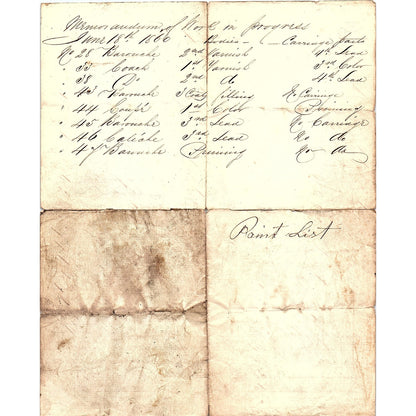 Memorandum of Work in progress
June 18th 1860 Bodies - Carriage parts
No 28 Barouche 2nd Varnish 4th Lead
" 33 Coach 1st Varnish 3rd Color
" 38 Do 2nd do 4th Lead
" 43 Barouche 3 Coats filling No Carriage
" 44 Coupé 1st Color Priming
" 45 Barouche 3rd Lead No Carriage
" 46 Caléche 3rd Lead No do
" 47 Barouche Priming No do
Paint List